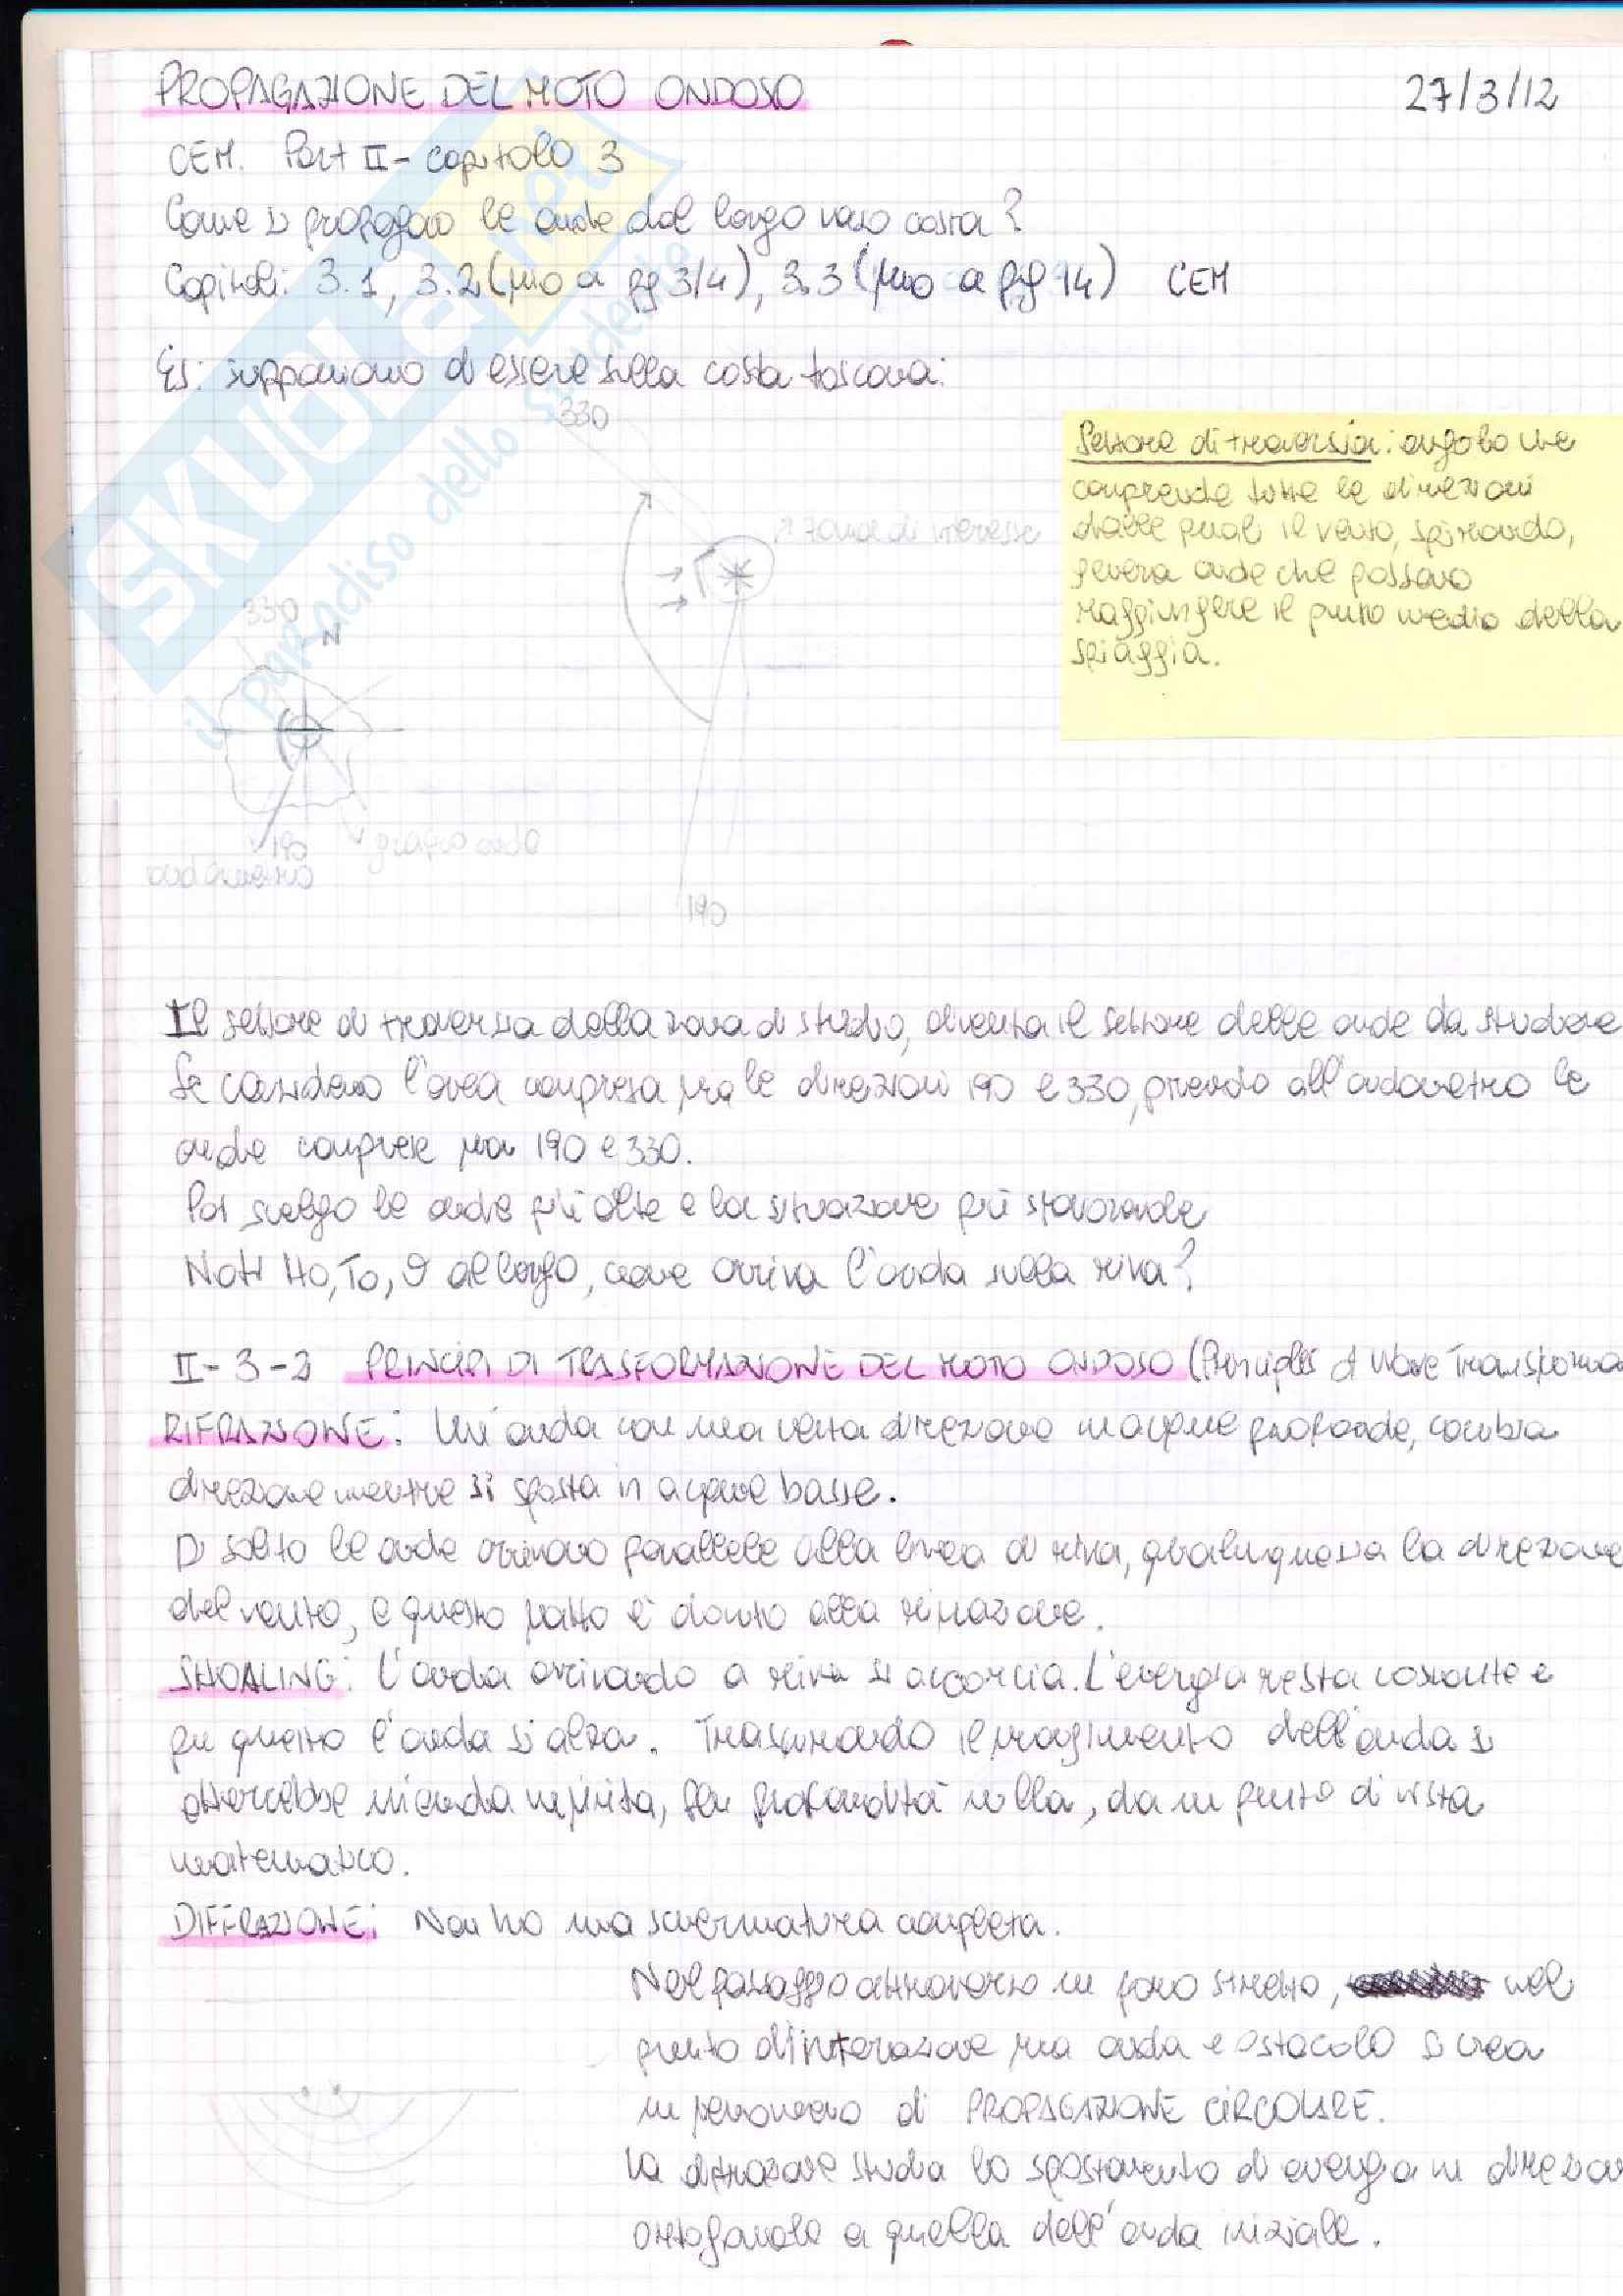 PROPAGAZIONE DEL MOTO ONDOSO
27/3/12
CEM. Part II - capitolo 3
Come si propagano le onde dal largo verso costa?
Capitoli: 3.1, 3.2 (fino a pg 3/4), 3.3 (fino a pg 14) CEM
Es: supponiamo di essere sulla costa toscana:
330
Settore di traversia: angolo che
comprende tutte le direzioni
dalle quali il vento, spirando,
genera onde che possono
raggiungere il punto medio della
spiaggia.
zona di interesse
330
N
190
grafico onde
ondametro
190
Il settore di traversia della zona di studio, diventa il settore delle onde da studiare
Se considero l'area compresa fra le direzioni 190 e 330, prendo all'ondametro le
onde comprese fra 190 e 330.
Poi scelgo le onde più alte e la situazione più sfavorevole
Noti Ho, To, θ al largo, come arriva l'onda sulla riva?
II - 3 - 2 PRINCIPI DI TRASFORMAZIONE DEL MOTO ONDOSO (Principles of Wave Transforma
RIFRAZIONE: Un'onda con una certa direzione in acque profonde, cambia
direzione mentre si sposta in acque basse.
Di solito le onde arrivano parallele alla linea di riva, qualunque sia la direzione
del vento, e questo fatto è dovuto alla rifrazione.
SHOALING: L'onda arrivando a riva si accorcia. L'energia resta costante e
per questo l'onda si alza. Trascurando il frangimento dell'onda si
otterrebbe un'onda infinita, per profondità nulla, da un punto di vista
matematico.
DIFFRAZIONE: Non ho una schermatura completa.
Nel passaggio attraverso un foro stretto, nel
punto d'interazione fra onda e ostacolo si crea
un fenomeno di PROPAGAZIONE CIRCOLARE.
La diffrazione studia lo spostamento di energia in direzion
ortogonale a quella dell'onda iniziale.
SKUOLA.net
il paradiso dello studente